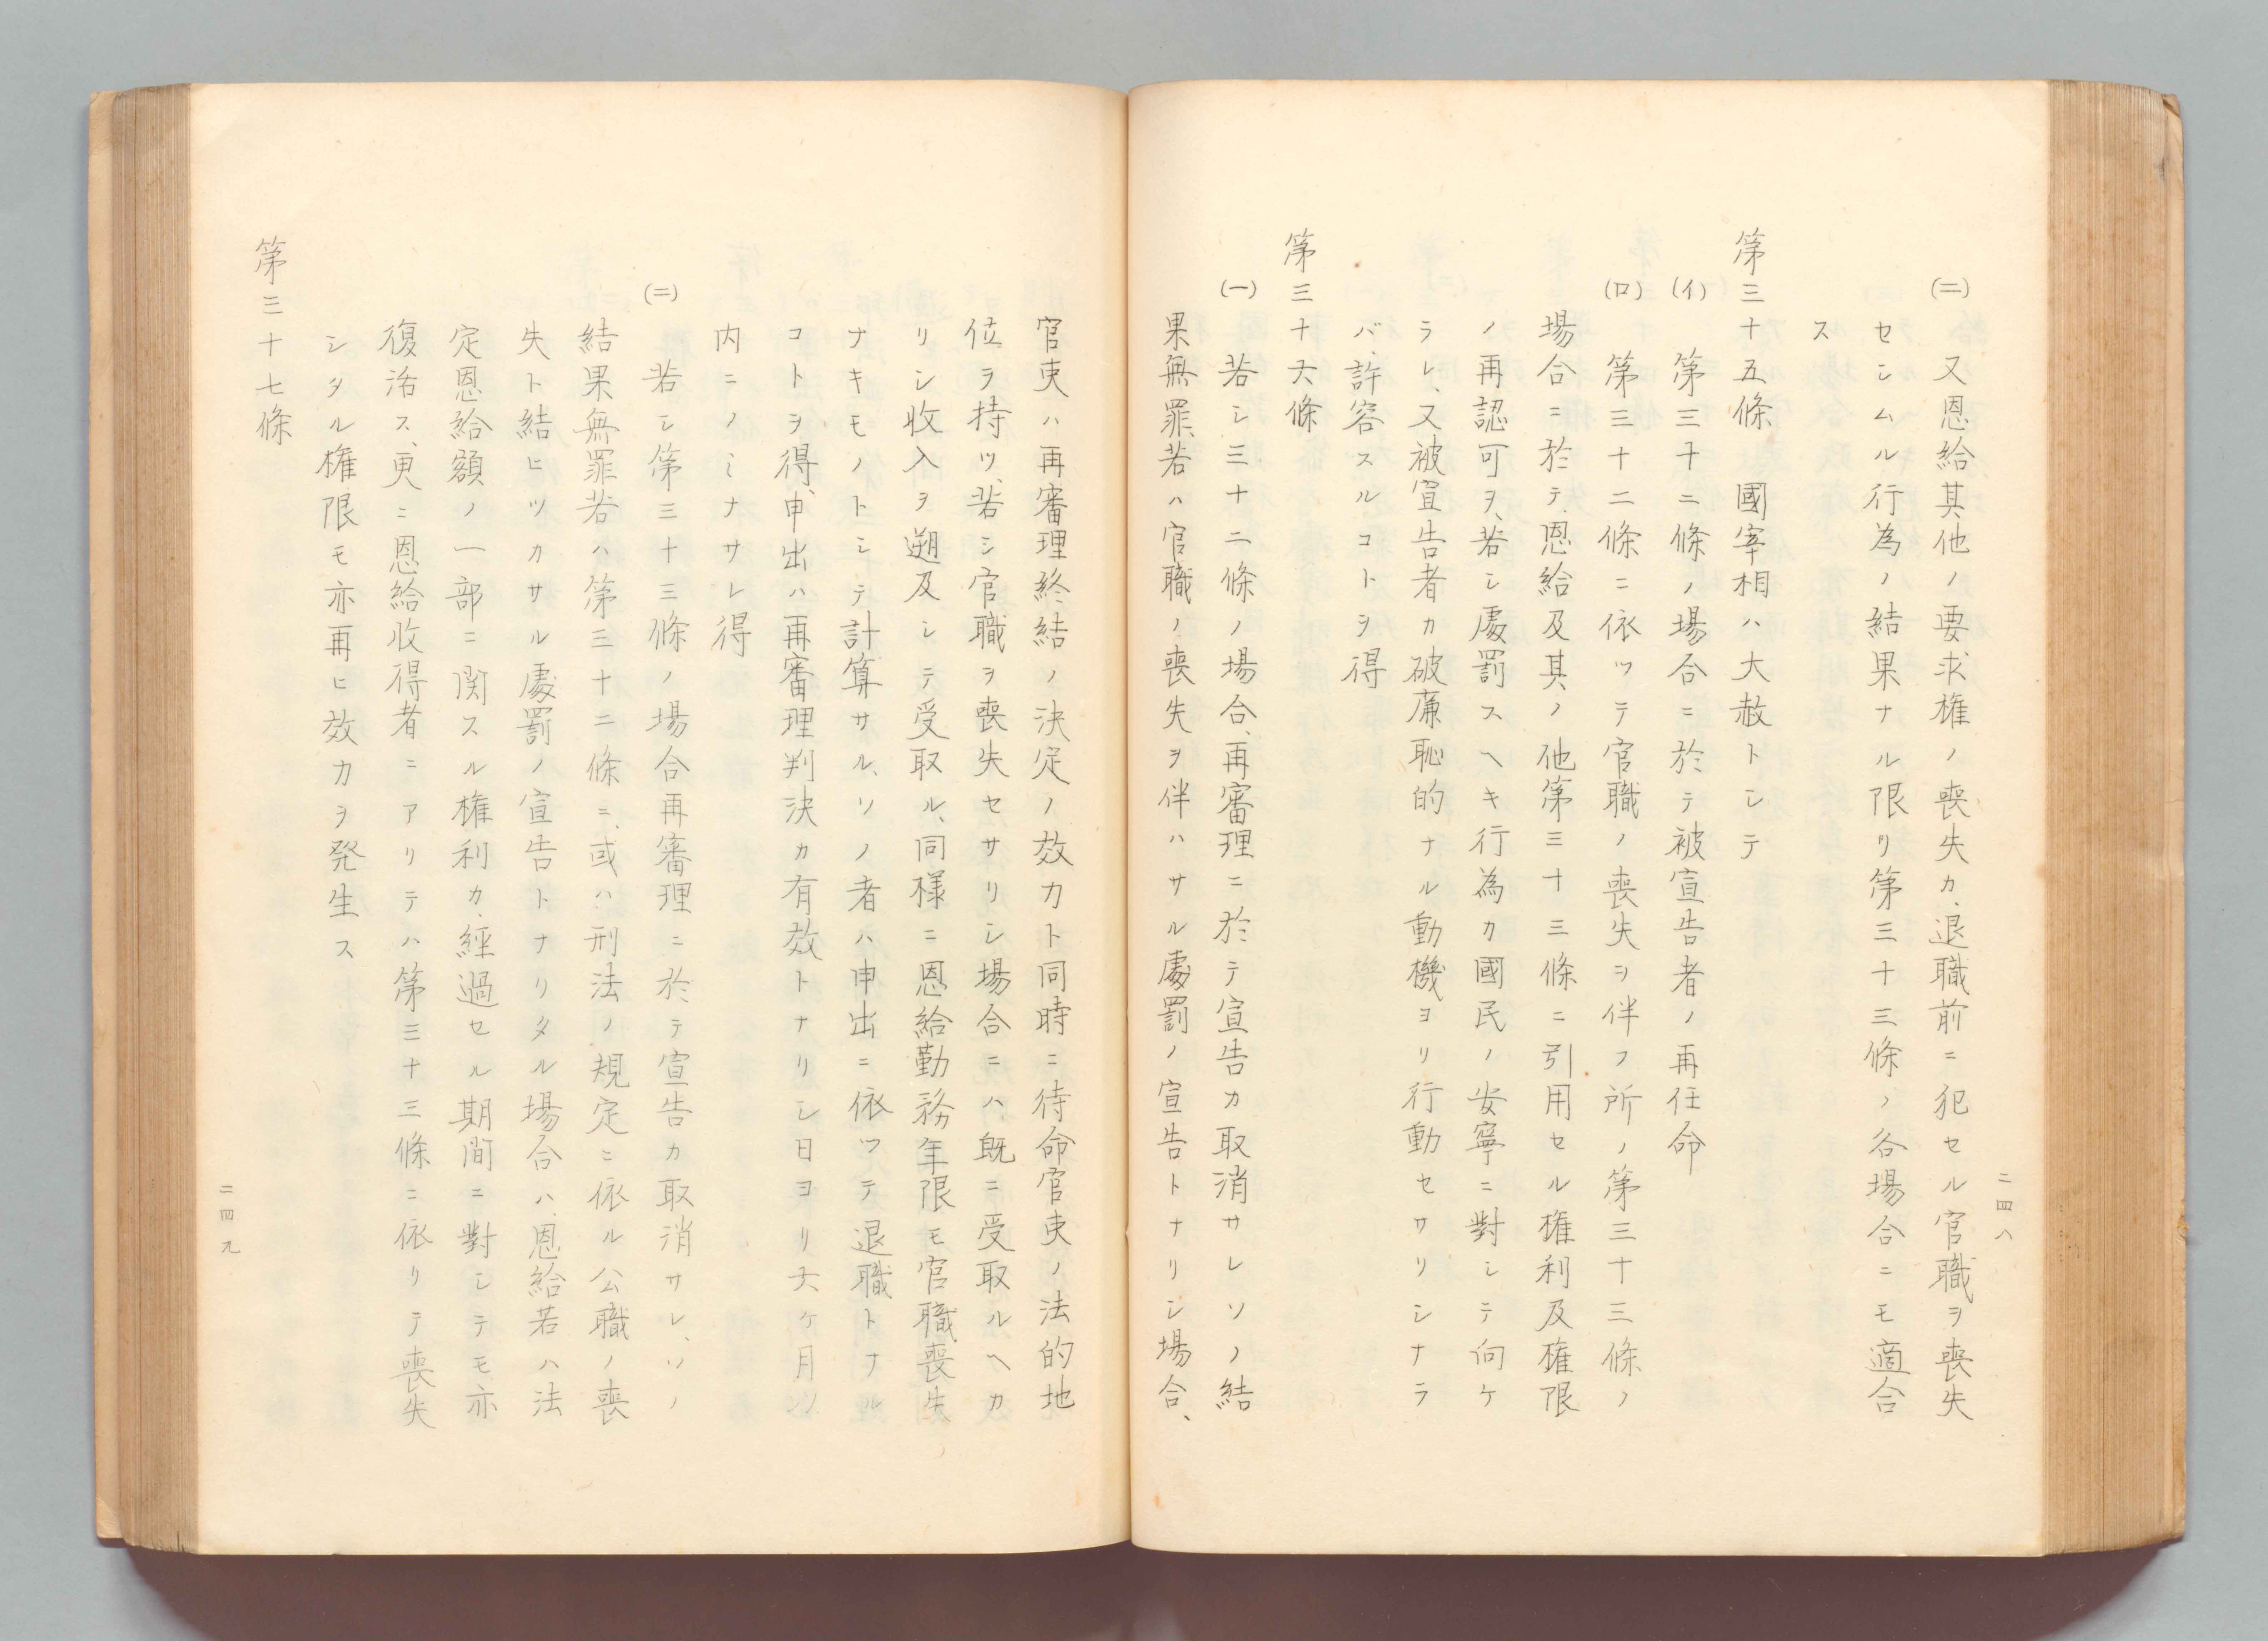 二四八
(二)
又恩給其他ノ要求権ノ喪失カ、退職前ニ犯セル官職ヲ喪失
セシムル行為ノ結果ナル限リ第三十三條ノ各場合ニモ適合
ス
第三十五條　國宰相ハ大赦トシテ
(イ)　第三十二條ノ場合ニ於テ被宣告者ノ再任命
(ロ)　第三十二條ニ依ツテ官職ノ喪失ヲ伴フ所ノ第三十三條ノ
場合ニ於テ、恩給及其ノ他第三十三條ニ引用セル権利及権限
ノ再認可ヲ、若シ處罰スヘキ行為カ國民ノ安寧ニ對シテ向ケ
ラレ、又被宣告者カ破廉恥的ナル動機ヨリ行動セサリシナラ
バ、許容スルコトヲ得
第三十六條
(一)　若シ三十二條ノ場合、再審理ニ於テ宣告カ取消サレソノ結
果無罪、若ハ官職ノ喪失ヲ伴ハサル處罰ノ宣告トナリシ場合、
官吏ハ再審理終結ノ決定ノ效力ト同時ニ待命官吏ノ法的地
位ヲ持ツ、若シ官職ヲ喪失セサリシ場合ニハ、既ニ受取ルヘカ
リシ收入ヲ遡及シテ受取ル、同様ニ恩給勤務年限モ官職喪失
ナキモノトシテ計算サル、ソノ者ハ申出ニ依ツテ退職トナル
コトヲ得、申出ハ再審理判決カ有效トナリシ日ヨリ六ケ月ノ
内ニノミナサレ得
(二)　若シ第三十三條ノ場合再審理ニ於テ宣告カ取消サレ、ソノ
結果無罪若ハ第三十二條ニ、或ハ刑法ノ規定ニ依ル公職ノ喪
失ト結ヒツカサル處罰ノ宣告トナリタル場合ハ、恩給若ハ法
定恩給額ノ一部ニ関スル権利カ、經過セル期間ニ對シテモ亦
復活ス、更ニ恩給收得者ニアリテハ第三十三條ニ依リテ喪失
シタル権限モ亦再ヒ效力ヲ発生ス
第三十七條
二四九